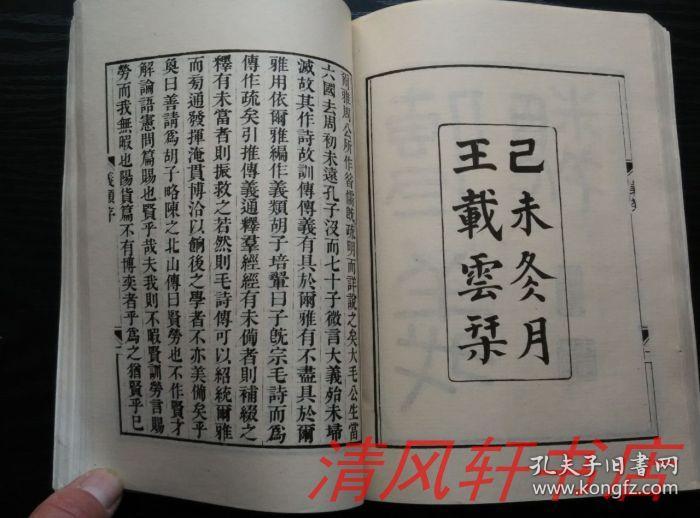 己未冬月
王載雲栞
爾雅周公所作谷儒旣疏明而詳說之矣大毛公生當
六國去周初未遠孔子沒而七十子微言大義殆未埽
滅故其作詩故訓傳傳義有具於爾雅有不盡具於爾
雅用依爾雅編作義類胡子培翬曰子旣宗毛詩而爲
傳作疏矣引推傳義通釋羣經經有未備者則補綴之
釋有未當者則振救之若然則毛詩傳可以紹統爾雅
而菊通發揮淹貫博洽以餉後之學者不亦美備矣乎
奐曰善請爲胡子略陳之北山傳曰賢勞也不作賢才
解論語憲問篇賜也賢乎哉夫我則不暇賢訓勞言賜
勞而我無暇也陽貨篇不有博奕者乎爲之猶賢乎已
義類序
清风轩书店
孔夫子旧书网
www.kongfz.com